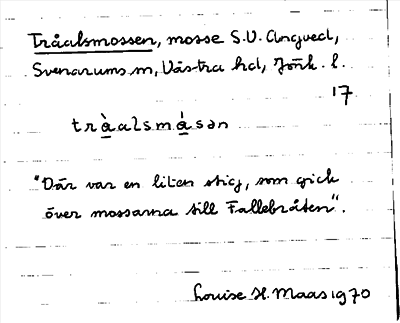 Tråalsmossen, mosse S.V. Ängved,
Svenarums sn, Västra hd, Jönk. l.
17
tràalsmásən
"Där var en liten stig, som gick
över mossarna till Fallebråten".
Louise H. Maas 1970